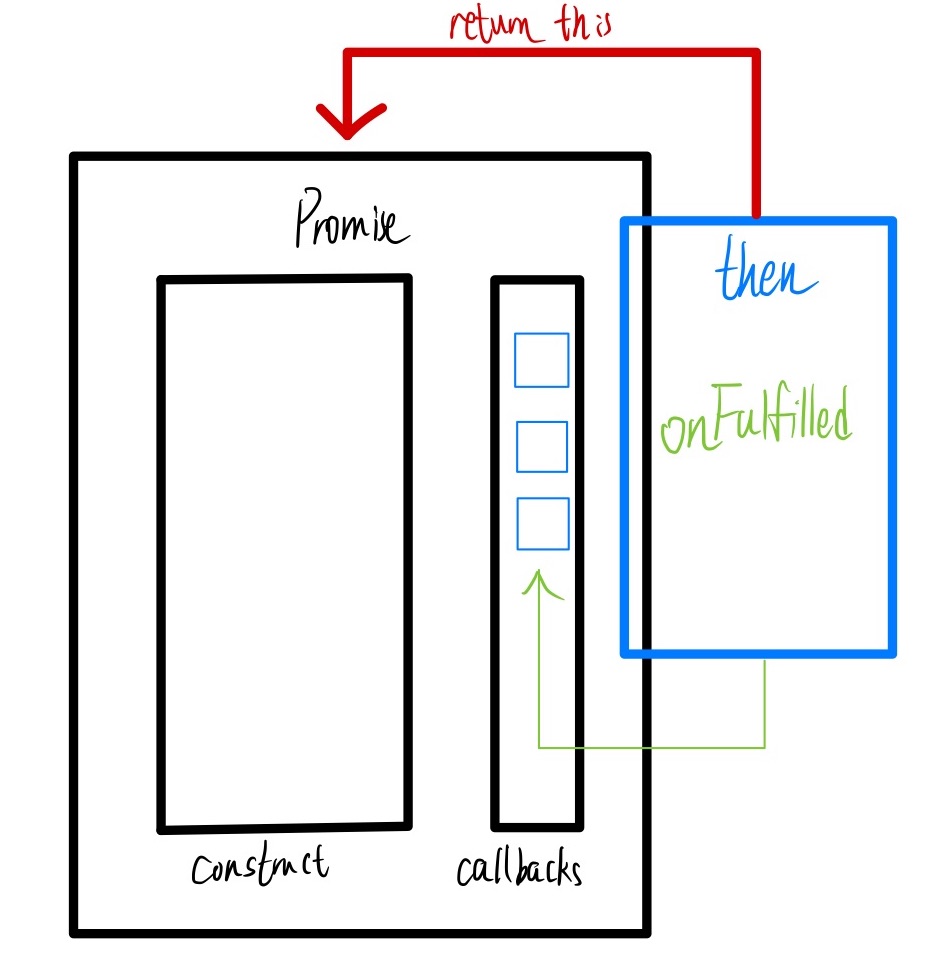 return this
Promise
then
onFulfilled
construct
callbacks